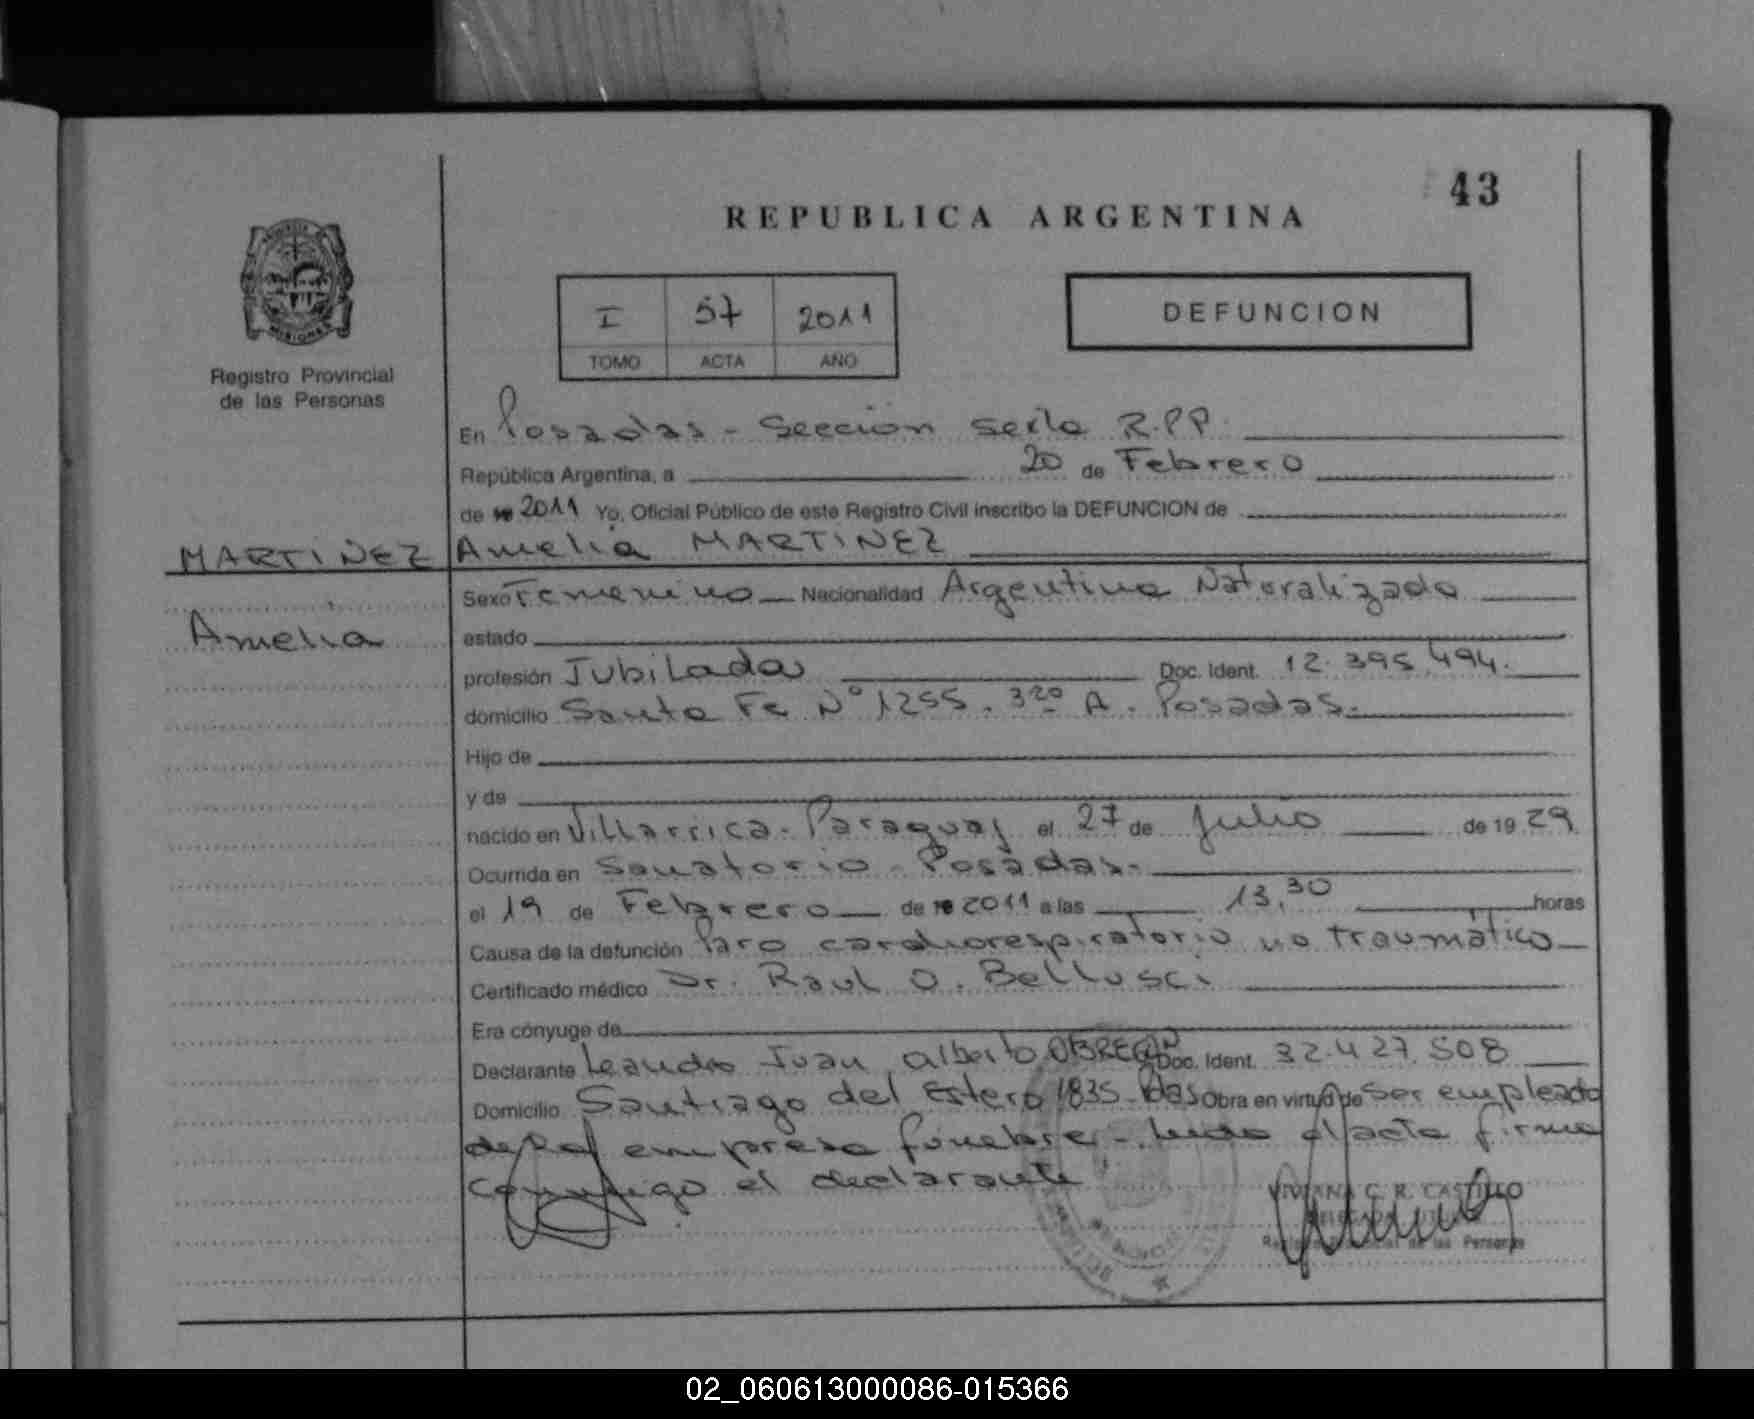 43
REPUBLICA ARGENTINA
I 57 2011
TOMO ACTA AÑO
DEFUNCION
MISIONES
Registro Provincial
de las Personas
En Posadas - Sección sexta R.P.P.
República Argentina, a 20 de Febrero
de 19 2011 Yo, Oficial Público de este Registro Civil inscribo la DEFUNCION de
MARTINEZ Amelia MARTINEZ
Amelia
Sexo Femenino Nacionalidad Argentina Naturalizada
estado
profesión Jubilada Doc. Ident. 12.395.494.
domicilio Santa Fe Nº 1255. 3ro A. Posadas.
Hijo de
y de
nacido en Villarrica - Paraguay el 27 de Julio de 19 29
Ocurrida en Sanatorio - Posadas.
el 19 de Febrero de 19 2011 a las 13,30 horas
Causa de la defunción Paro cardiorespiratorio no traumático
Certificado médico Dr. Raul O. Bellusci
Era cónyuge de
Declarante Leandro Juan alberto OBREGON Doc. Ident. 32.427.508
Domicilio Santiago del Estero 1835 - Pdas Obra en virtud de ser empleado
de la empresa fúnebre - Leida el acta firma
conmigo el declarante
VIVIANA C. R. CASTILLO
DELEGADA TITULAR
Registro Provincial de las Personas
02_060613000086-015366